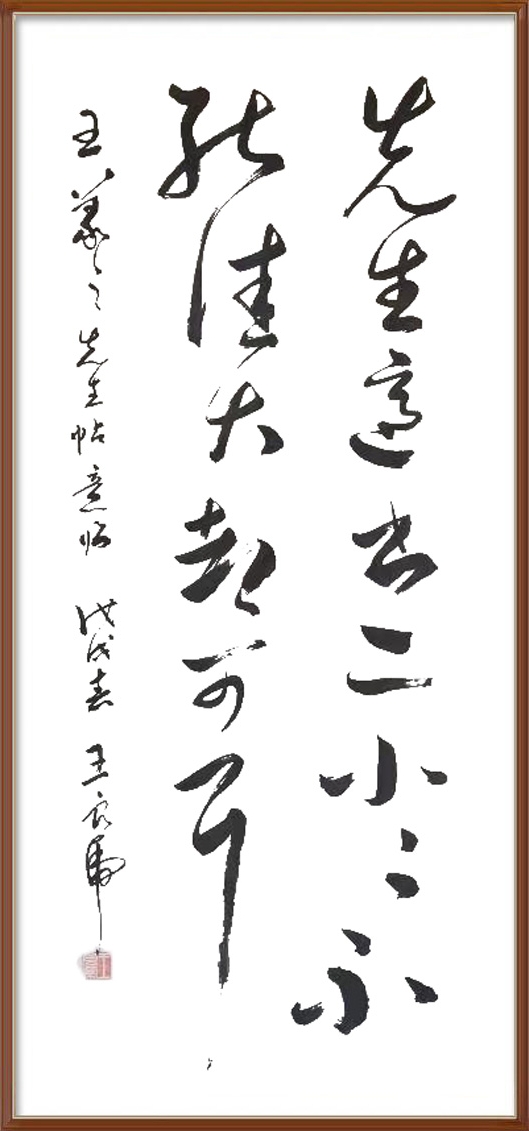 先生適書亦小小不
能佳大都可耳
王羲之先生帖意临 戊戌春 王良虎